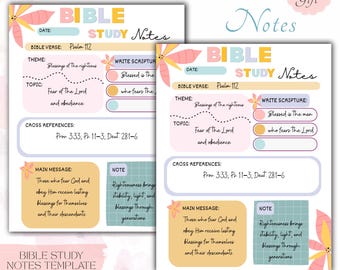 Gift
Notes
BIBLE
STUDY Notes
DATE:
BIBLE VERSE: Psalm 112
THEME:
Blessings of the righteous
TOPIC:
Fear of the Lord
and obedience
WRITE SCRIPTURE:
Blessed is the
who fears the
CROSS REFERENCES:
Prov 3:33, Ps. 11-3, Deut 28:1-6
MAIN MESSAGE:
Those who fear God and
obey Him receive lasting
blessings for themselves
and their descendants
NOTE
Righteousness brings
stability, light, and
blessings through
generations
BIBLE
STUDY Notes
DATE:
BIBLE VERSE: Psalm 112
THEME:
Blessings of the righteous
TOPIC:
Fear of the Lord
and obedience
WRITE SCRIPTURE:
Blessed is the man
who fears the Lord
CROSS REFERENCES:
Prov 3:33, Ps. 11-3, Deut 28:1-6
MAIN MESSAGE:
Those who fear God and
obey Him receive lasting
blessings for themselves
and their descendants
NOTE
Righteousness brings
stability, light, and
blessings through
generations
BIBLE STUDY
NOTES TEMPLATE